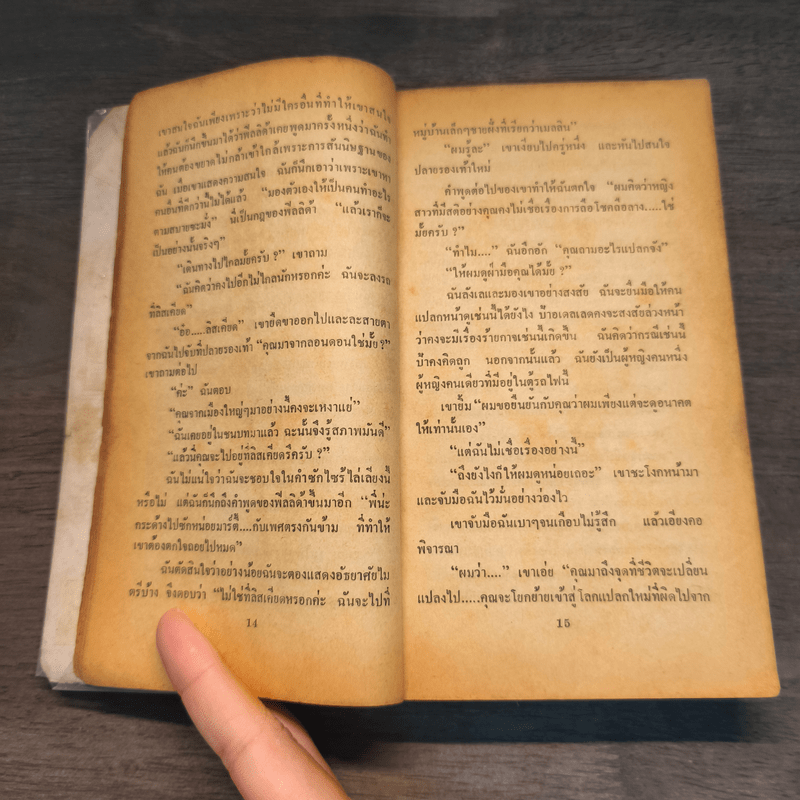 เขาสนใจฉันเพียงเพราะว่าไม่มีใครอื่นที่ทำให้เขาสนใจ
แล้วฉันก็นึกขึ้นมาได้ว่าพิลลิด้าเคยพูดมาครั้งหนึ่งว่าฉันทำ
ให้คนต้องขยาดไม่กล้าเข้าใกล้เพราะการสันนิษฐานของ
ฉัน เมื่อเขาแสดงความสนใจ ฉันก็นึกเอาว่าเพราะเขาหา
คนอื่นที่ดีกว่านี้ไม่ได้แล้ว “มองตัวเองให้เป็นคนทำอะไร
ตามสบายซะมั่ง” นี่เป็นกฎของพิลลิด้า “แล้วเราก็จะ
เป็นอย่างนั้นจริงๆ”
“เดินทางไปไกลมั้ยครับ ?” เขาถาม
“ฉันคิดว่าคงไปอีกไม่ไกลนักหรอกค่ะ ฉันจะลงรถ
ที่ลิสเคียด”
“อ้อ.....ลิสเคียด” เขายืดขาออกไปและละสายตา
จากฉันไปจับที่ปลายรองเท้า “คุณมาจากลอนดอนใช่มั้ย?”
เขาถามต่อไป
“ค่ะ” ฉันตอบ
“คุณจากเมืองใหญ่ๆมาอย่างนี้คงจะเหงาแย่”
“ฉันเคยอยู่ในชนบทมาแล้ว ฉะนั้นจึงรู้สภาพมันดี”
“แล้วนี่คุณจะไปอยู่ที่ลิสเคียดรึครับ ?”
ฉันไม่แน่ใจว่าฉันจะชอบใจในคำซักไซร้ไล่เลียงนี้
หรือไม่ แต่ฉันก็นึกถึงคำพูดของพิลลิด้าขึ้นมาอีก “พี่น่ะ
กระด้างไปซักหน่อยมาร์ตี้....กับเพศตรงกันข้าม ที่ทำให้
เขาต้องตกใจถอยไปหมด”
ฉันตัดสินใจว่าอย่างน้อยฉันจะต้องแสดงอัธยาศัยไม
ตรีบ้าง จึงตอบว่า “ไม่ใช่ที่ลิสเคียดหรอกค่ะ ฉันจะไปที่
14
หมู่บ้านเล็กๆชายฝั่งที่เรียกว่าเมลลิน”
“ผมรู้ละ” เขาเงียบไปครู่หนึ่ง และหันไปสนใจ
ปลายรองเท้าใหม่
คำพูดต่อไปของเขาทำให้ฉันตกใจ “ผมคิดว่าหญิง
สาวที่มีสติอย่างคุณคงไม่เชื่อเรื่องการถือโชคลือลาง.....ใช่
มั้ยครับ ?”
“ทำไม....” ฉันอึกอัก “คุณถามอะไรแปลกจัง”
“ให้ผมดูฝ่ามือคุณได้มั้ย ?”
ฉันลังเลและมองเขาอย่างสงสัย ฉันจะยื่นมือให้คน
แปลกหน้าดูเช่นนี้ได้ยังไง ป้าอเดเลดคงจะสงสัยล่วงหน้า
ว่าคงจะมีเรื่องร้ายกาจเช่นนี้เกิดขึ้น ฉันคิดว่ากรณีเช่นนี้
ป้าคงคิดถูก นอกจากนั้นแล้ว ฉันยังเป็นผู้หญิงคนหนึ่ง
ผู้หญิงคนเดียวที่มีอยู่ในตู้รถไฟนี้
เขายิ้ม “ผมขอยืนยันกับคุณว่าผมเพียงแต่จะดูอนาคต
ให้เท่านั้นเอง”
“แต่ฉันไม่เชื่อเรื่องอย่างนี้”
“ถึงยังไงก็ให้ผมดูหน่อยเถอะ” เขาชะโงกหน้ามา
และจับมือฉันไว้มั่นอย่างว่องไว
เขาจับมือฉันเบาๆจนเกือบไม่รู้สึก แล้วเอียงคอ
พิจารณา
“ผมว่า....” เขาเอ่ย “คุณมาถึงจุดที่ชีวิตจะเปลี่ยน
แปลงไป.....คุณจะโยกย้ายเข้าสู่ โลกแปลกใหม่ที่ผิดไปจาก
15